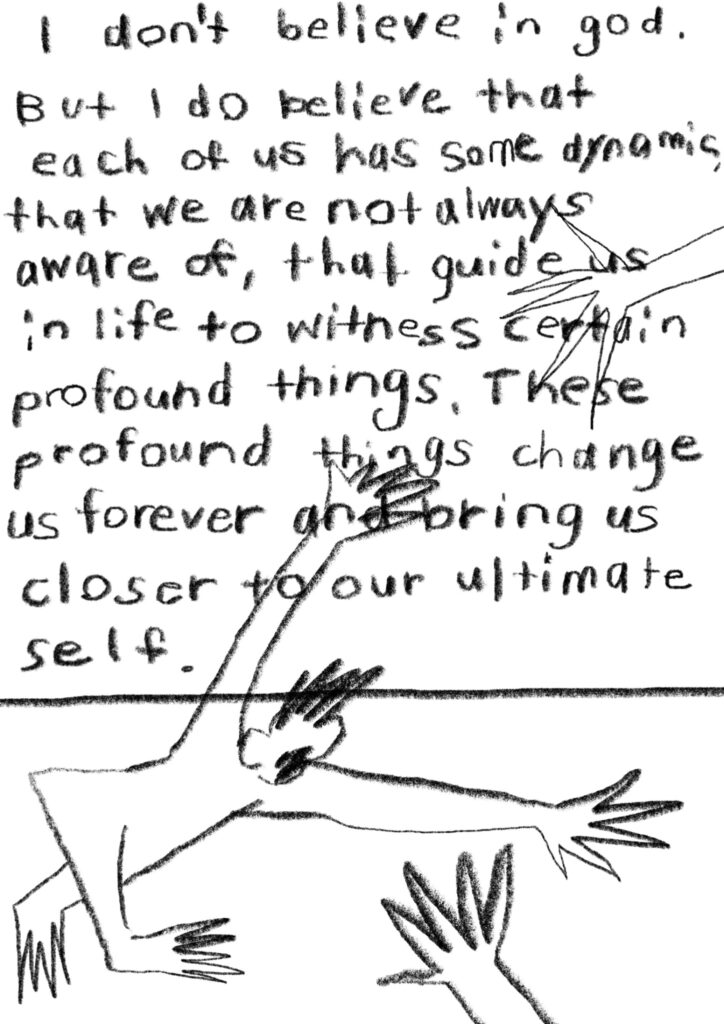 I don't believe in god.
But I do believe that
each of us has some dynamic,
that we are not always
aware of, that guide us
in life to witness certain
profound things. These
profound things change
us forever and bring us
closer to our ultimate
self.